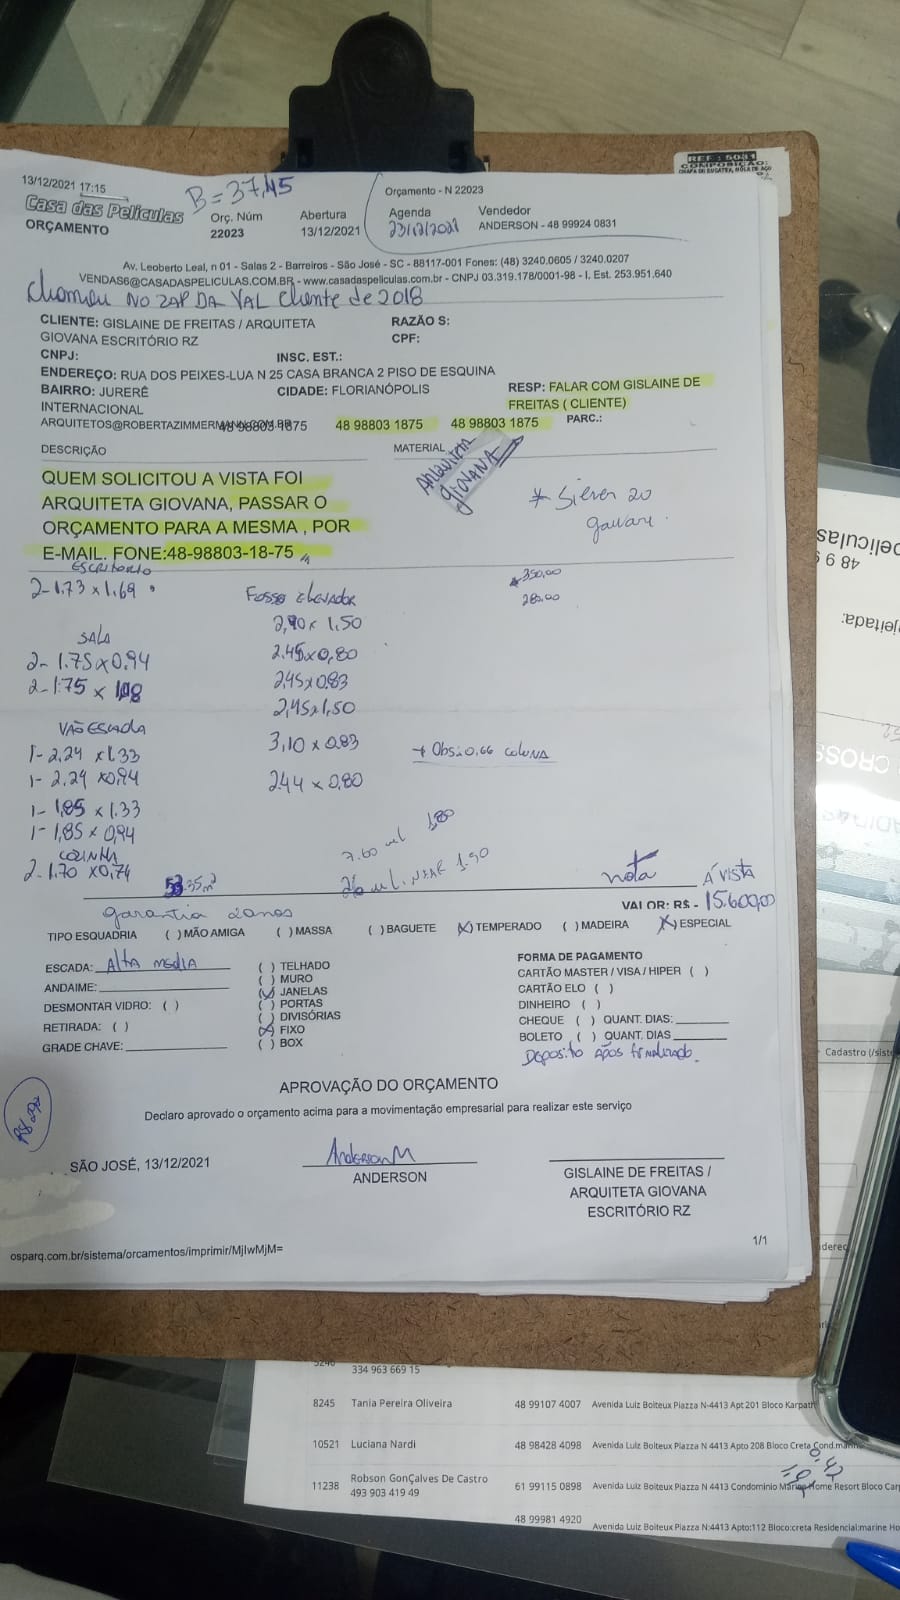 REF : 5031
COMPOSIÇÃO:
13/12/2021 17:15
B = 37,45
Orçamento - N 22023
Casa das Películas
ORÇAMENTO
Orç. Núm
22023
Abertura
13/12/2021
Agenda
23/12/2021
Vendedor
ANDERSON - 48 99924 0831
Av. Leoberto Leal, n 01 - Salas 2 - Barreiros - São José - SC - 88117-001 Fones: (48) 3240.0605 / 3240.0207
VENDAS6@CASADASPELICULAS.COM.BR - www.casadaspeliculas.com.br - CNPJ 03.319.178/0001-98 - I. Est. 253.951.640
chamou NO ZAP DA VAL cliente de 2018
CLIENTE: GISLAINE DE FREITAS / ARQUITETA
GIOVANA ESCRITÓRIO RZ
RAZÃO S:
CPF:
CNPJ:
INSC. EST.:
ENDEREÇO: RUA DOS PEIXES-LUA N 25 CASA BRANCA 2 PISO DE ESQUINA
BAIRRO: JURERÊ
INTERNACIONAL
CIDADE: FLORIANÓPOLIS
RESP: FALAR COM GISLAINE DE
FREITAS ( CLIENTE)
ARQUITETOS@ROBERTAZIMMERMANN.COM.BR
48 98803 1875
48 98803 1875
48 98803 1875
PARC.:
DESCRIÇÃO
MATERIAL
Arquiteta
GIOVANA
QUEM SOLICITOU A VISTA FOI
ARQUITETA GIOVANA, PASSAR O
ORÇAMENTO PARA A MESMA , POR
E-MAIL. FONE:48-98803-18-75
ESCRITORIO
2-1.73 x 1.69
350,00
280.00
SALA
2- 1.75 x 0.94
2-1.75 x
VÃO ESCADA
1- 2,24 x 1.33
1- 2.24 x 0.94
1- 1,85 x 1.33
1- 1,85 x 0,94
COZINHA
2-1.70 x 0,74
Fosso Elevador
2,90 x 1.50
2.45 x 0,80
2,45 x 0.83
2,45 x 1.50
3,10 x 0.83
2.44 x 0.80
+ Obs: 0,66 coluna
7.60 ml 1,80
nota
Á VISTA
VALOR: R$ - 15.600,00
garantia 2 anos
TIPO ESQUADRIA ( ) MÃO AMIGA ( ) MASSA ( ) BAGUETE (X) TEMPERADO ( ) MADEIRA (X) ESPECIAL
ESCADA: Alta media
ANDAIME:
DESMONTAR VIDRO: ( )
RETIRADA: ( )
GRADE CHAVE:
( ) TELHADO
( ) MURO
(X) JANELAS
( ) PORTAS
( ) DIVISÓRIAS
(X) FIXO
( ) BOX
FORMA DE PAGAMENTO
CARTÃO MASTER / VISA / HIPER ( )
CARTÃO ELO ( )
DINHEIRO ( )
CHEQUE ( ) QUANT. DIAS:
BOLETO ( ) QUANT. DIAS
Deposito Após finalizado.
APROVAÇÃO DO ORÇAMENTO
Declaro aprovado o orçamento acima para a movimentação empresarial para realizar este serviço
SÃO JOSÉ, 13/12/2021
Anderson M
ANDERSON
GISLAINE DE FREITAS /
ARQUITETA GIOVANA
ESCRITÓRIO RZ
1/1
osparq.com.br/sistema/orcamentos/imprimir/MjIwMjM=
Cadastro (/siste
334 963 669 15
8245 Tania Pereira Oliveira 48 99107 4007 Avenida Luiz Boiteux Piazza N-4413 Apt 201 Bloco Karpath
10521 Luciana Nardi 48 98428 4098 Avenida Luiz Boiteux Piazza N 4413 Apto 208 Bloco Creta Cond.
11238 Robson GonÇalves De Castro
493 903 419 49
61 99115 0898 Avenida Luiz Boiteux Piazza N 4413 Condominio Home Resort Bloco
48 99981 4920 Avenida Luiz Boiteux Piazza N:4413 Apto:112 Bloco:creta Residencial:marine